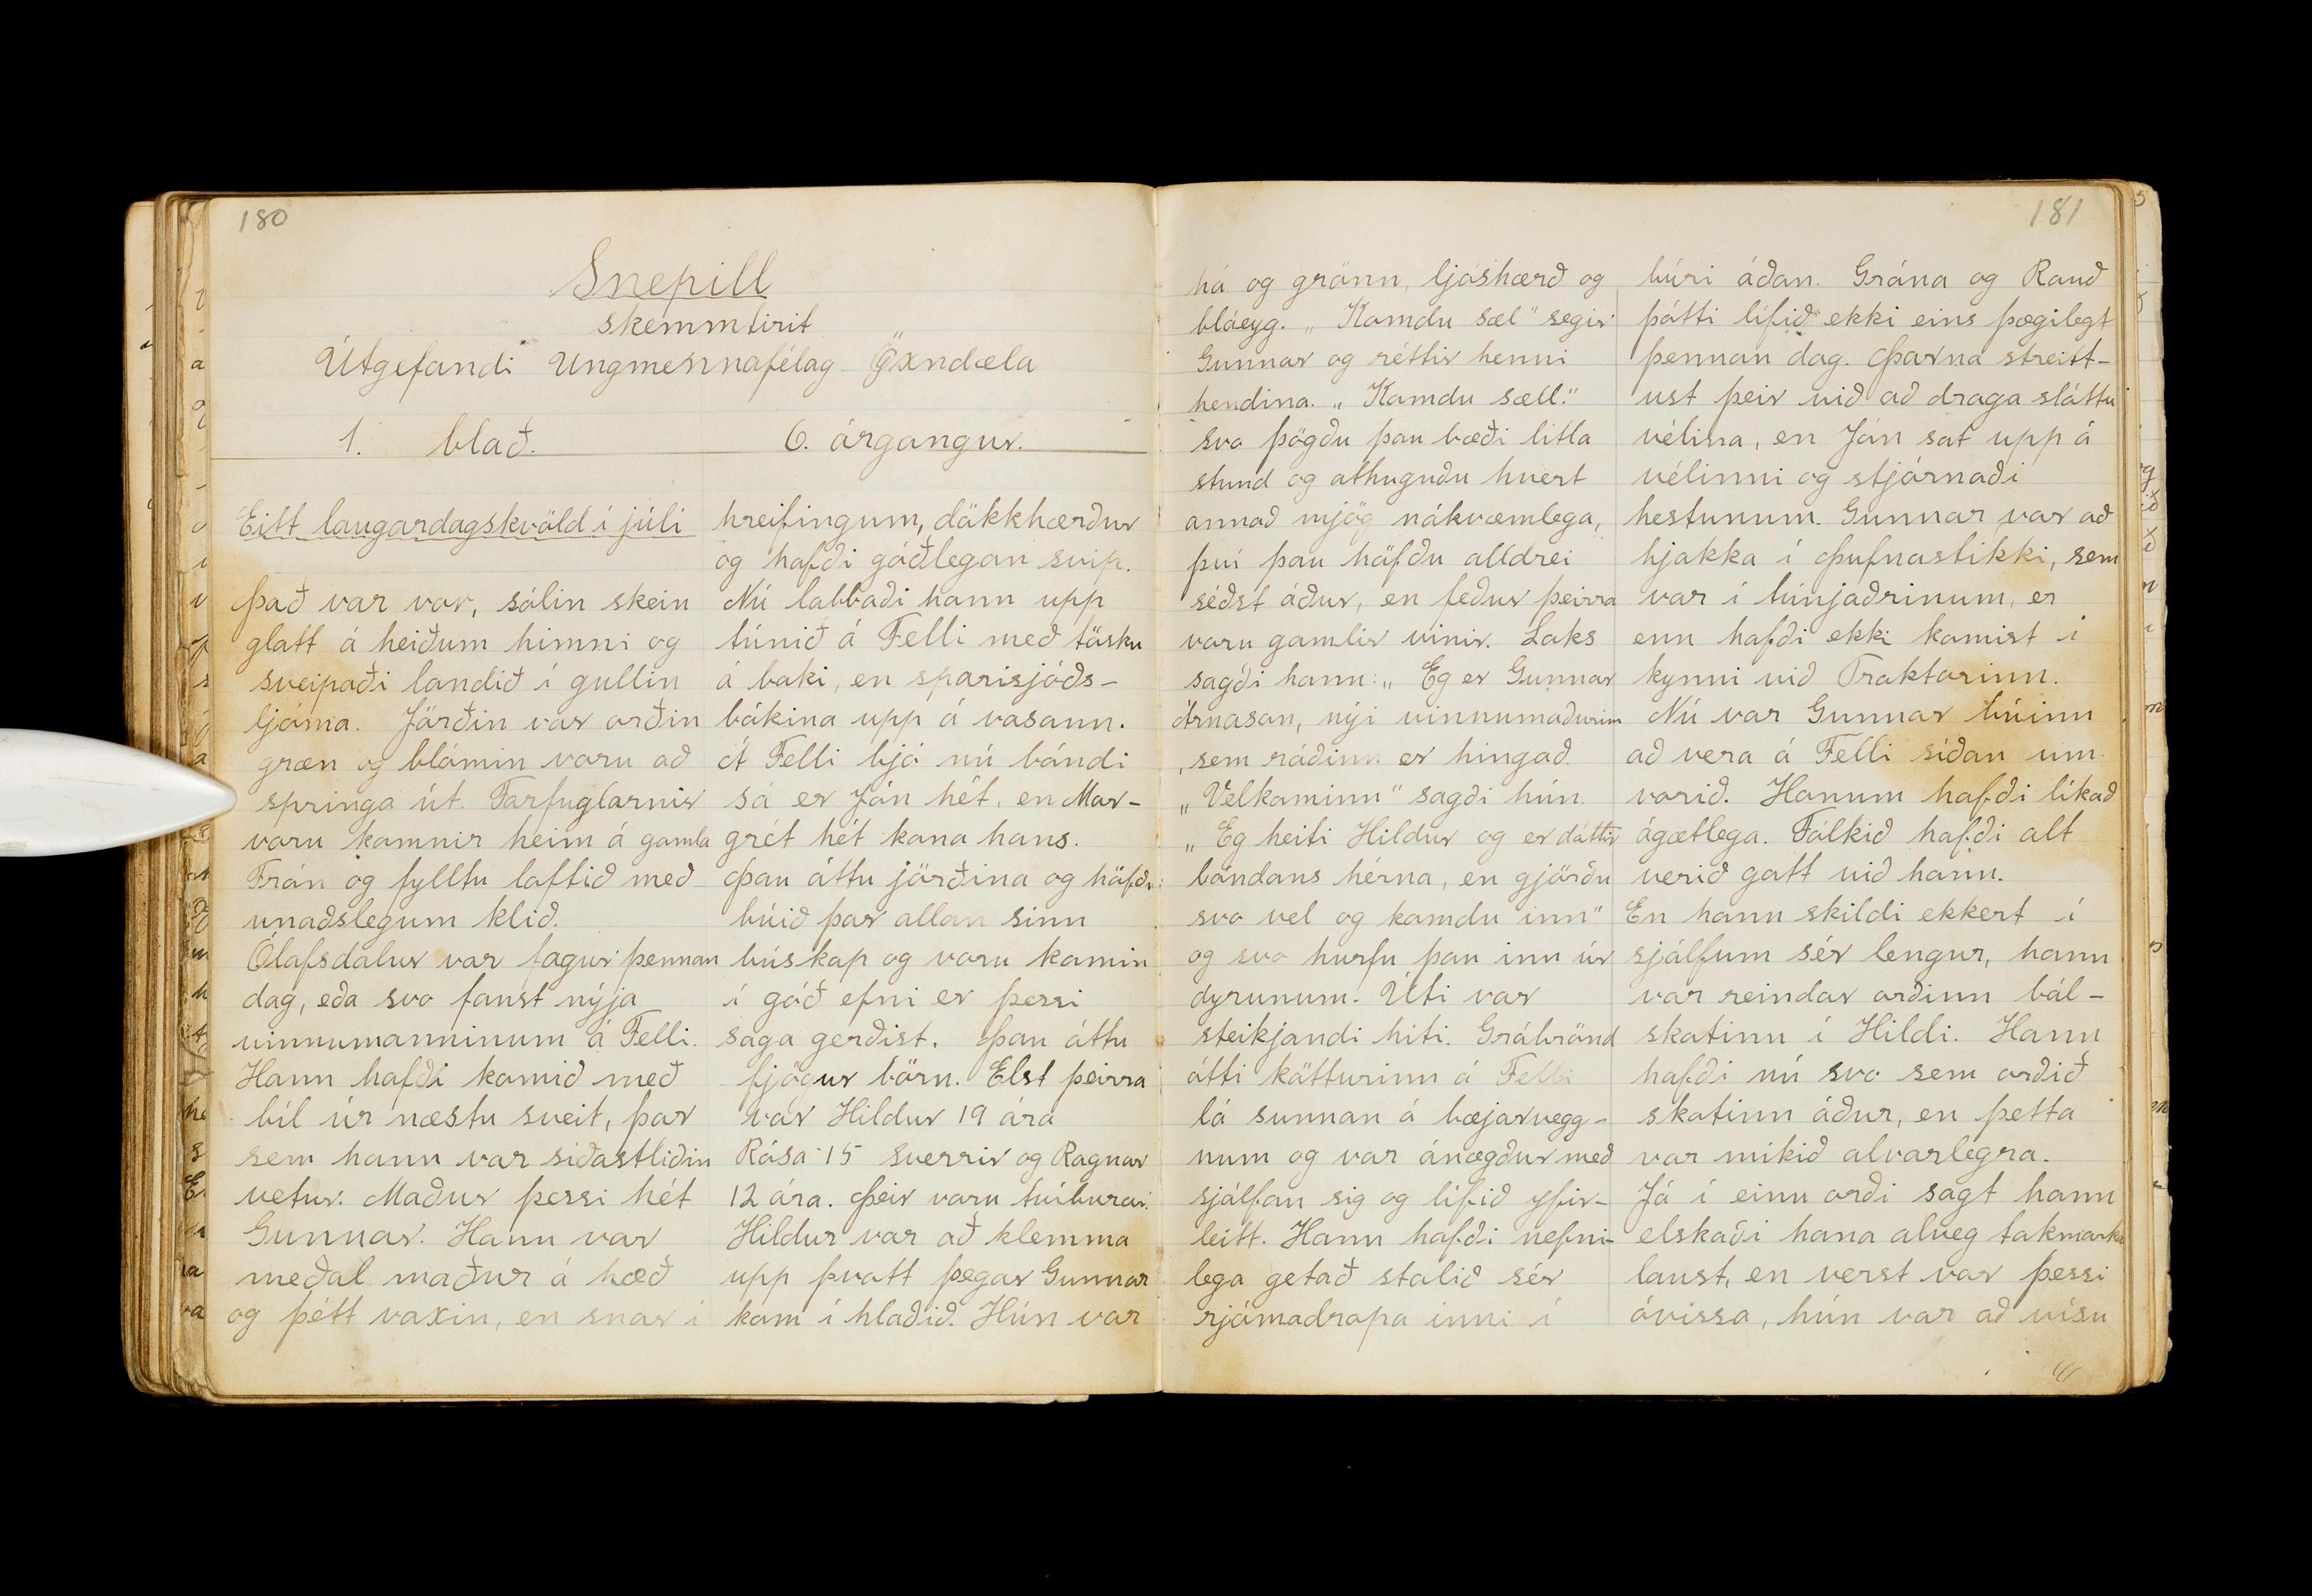 180
Snepill
skemmtirit
Útgefandi Ungmennafélag Öxndæla
1. blað. 6. árgangur.
Eitt laugardagskvöld í júlí
Það var vor, sólin skein
glatt á heiðum himni og
sveipaði landið í gullin
ljóma. Jörðin var orðin
græn og blómin voru að
springa út. Farfuglarnir
voru komnir heim á gamla
Frón og fylltu loftið með
unaðslegum klið.
Ólafsdalur var fagur þennan
dag, eða svo fanst nýja
vinnumanninum á Felli.
Hann hafði komið með
bíl úr næstu sveit, þar
sem hann var síðastliðin
vetur. Maður þessi hét
Gunnar. Hann var
meðal maður á hæð
og þétt vaxin, en snar í
hreifingum, dökkhærður
og hafði góðlegan svip.
Nú labbaði hann upp
túnið á Felli með tösku
á baki, en sparisjóðs-
bókina upp á vasann.
Á Felli bjó nú bóndi
sá er Jón hét, en Mar-
grét hét kona hans.
Þau áttu jörðina og höfðu
búið þar allan sinn
búskap og voru komin
í góð efni er þessi
saga gerðist. Þau áttu
fjögur börn. Elst þeirra
var Hildur 19 ára
Rósa 15 Sverrir og Ragnar
12 ára. Þeir voru tvíburar.
Hildur var að klemma
upp þvott þegar Gunnar
kom í hlaðið. Hún var
181
há og grönn, ljóshærð og
bláeyg. „Komdu sæl" segir
Gunnar og réttir henni
hendina. „Komdu sæll."
svo þögðu þau bæði litla
stund og athuguðu hvert
annað mjög nákvæmlega,
því þau höfðu alldrei
séðst áður, en feður þeirra
voru gamlir vinir. Loks
sagði hann: „Eg er Gunnar
Árnason, nýi vinnumaðurinn
sem ráðinn er hingað.
„Velkominn" sagði hún.
„Eg heiti Hildur og er dóttir
bóndans hérna, en gjörðu
svo vel og komdu inn"
og svo hurfu þau inn úr
dyrunum. Úti var
steikjandi hiti. Grábrönd
ótti kötturinn á Felli
lá sunnan á bæjarvegg-
num og var ánægður með
sjálfan sig og lífið yfir-
leitt. Hann hafði nefni-
lega getað stolið sér
rjómadropa inni í
búri áðan. Grána og Rauð
þótti lífið ekki eins þægilegt
þennan dag. Þarna streitt-
ust þeir við að draga sláttu
vélina, en Jón sat upp á
vélinni og stjórnaði
hestunum. Gunnar var að
hjakka í þufnastikki, sem
var í túnjaðrinum, er
enn hafði ekki komist í
kynni við Traktorinn.
Nú var Gunnar búinn
að vera á Felli síðan um
vorið. Honum hafði líkað
ágætlega. Fólkið hafði alt
verið gott við hann.
En hann skildi ekkert í
sjálfum sér lengur, hann
var reindar orðinn bál-
skotinn í Hildi. Hann
hafði nú svo sem orðið
skotinn áður, en þetta
var mikið alvarlegra.
Já í einu orði sagt hann
elskaði hana alveg takmarka
laust, en verst var þessi
óvissa, hún var að vísu